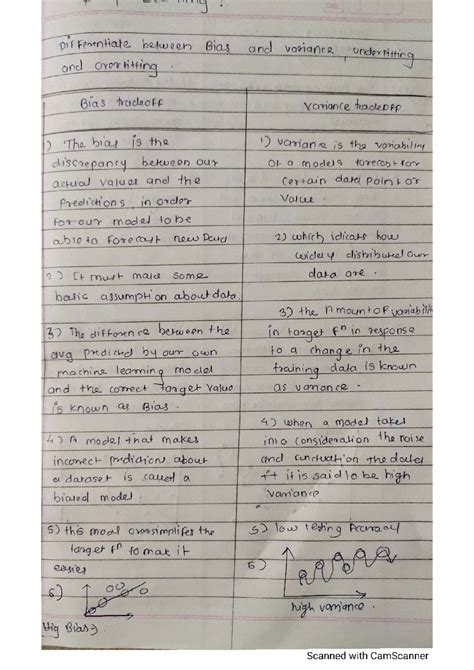 Differentiate between Bias and variance, underfitting
and overfitting.
Bias tradeoff
1) The bias is the
discrepancy between our
actual values and the
Predictions, in order
for our model to be
able to forecast new Data
2) It must made some
basic assumption about data
3) The difference between the
avg predicted by our own
machine learning model
and the correct Target value
is known as Bias.
4) A model that makes
incorrect prediction about
a dataset is called a
biated model.
5) this model oversimplifes the
target Fⁿ to mak it
easies
6)
Hig Bias
variance tradeoff
1) variance is the variability
of a models forecast for
certain data point or
value.
2) which idicate how
widely distributed our
data are.
3) the Amount of variabilit
in target Fⁿ in response
to a change in the
training data is known
as variance.
4) when a model takes
into consideration the noise
and the
it it is said to be high
variance
5) low testing Accuracy
6)
high variance.
Scanned with CamScanner